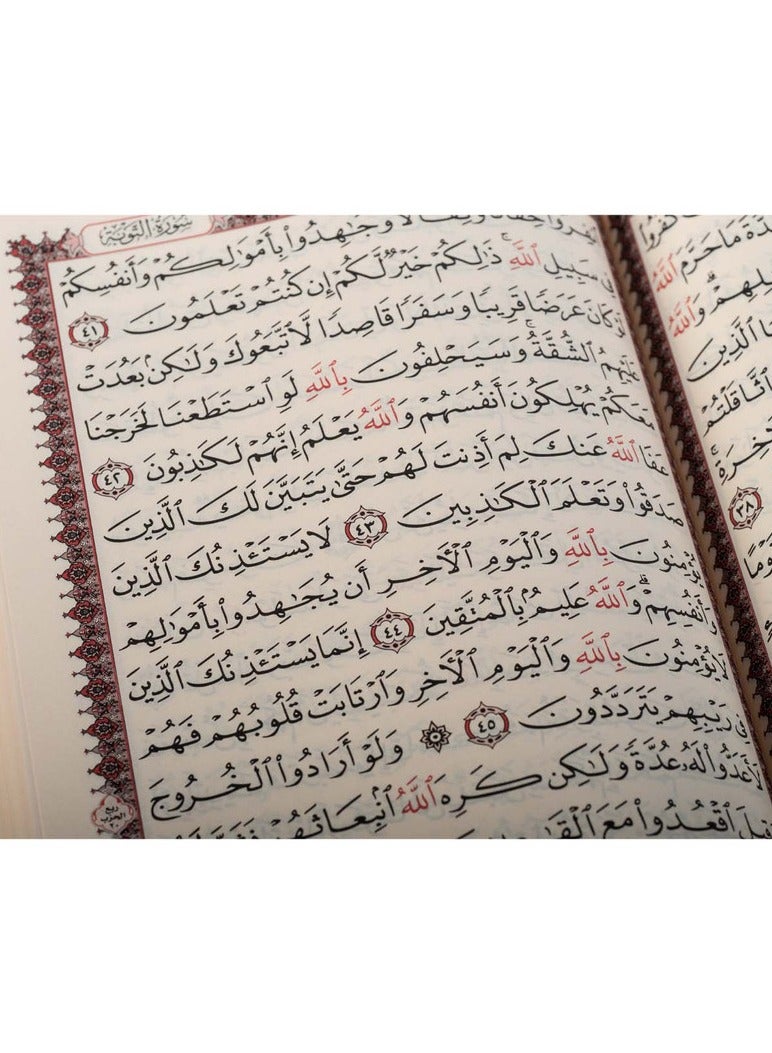 سُورَةُ التَّوْبَةِ
وَجَٰهِدُوا۟ بِأَمْوَٰلِكُمْ وَأَنفُسِكُمْ
فِى سَبِيلِ ٱللَّهِ ۚ ذَٰلِكُمْ خَيْرٌ لَّكُمْ إِن كُنتُمْ تَعْلَمُونَ ٤١
لَوْ كَانَ عَرَضًا قَرِيبًا وَسَفَرًا قَاصِدًا لَّٱتَّبَعُوكَ وَلَٰكِنۢ بَعُدَتْ
عَلَيْهِمُ ٱلشُّقَّةُ ۚ وَسَيَحْلِفُونَ بِٱللَّهِ لَوِ ٱسْتَطَعْنَا لَخَرَجْنَا
مَعَكُمْ يُهْلِكُونَ أَنفُسَهُمْ وَٱللَّهُ يَعْلَمُ إِنَّهُمْ لَكَٰذِبُونَ ٤٢
عَفَا ٱللَّهُ عَنكَ لِمَ أَذِنتَ لَهُمْ حَتَّىٰ يَتَبَيَّنَ لَكَ ٱلَّذِينَ
صَدَقُوا۟ وَتَعْلَمَ ٱلْكَٰذِبِينَ ٤٣ لَا يَسْتَـْٔذِنُكَ ٱلَّذِينَ
يُؤْمِنُونَ بِٱللَّهِ وَٱلْيَوْمِ ٱلْـَٔاخِرِ أَن يُجَٰهِدُوا۟ بِأَمْوَٰلِهِمْ
وَأَنفُسِهِمْ ۗ وَٱللَّهُ عَلِيمٌۢ بِٱلْمُتَّقِينَ ٤٤ إِنَّمَا يَسْتَـْٔذِنُكَ ٱلَّذِينَ
لَا يُؤْمِنُونَ بِٱللَّهِ وَٱلْيَوْمِ ٱلْـَٔاخِرِ وَٱرْتَابَتْ قُلُوبُهُمْ فَهُمْ
فِى رَيْبِهِمْ يَتَرَدَّدُونَ ٤٥ ۞ وَلَوْ أَرَادُوا۟ ٱلْخُرُوجَ
لَأَعَدُّوا۟ لَهُۥ عُدَّةً وَلَٰكِن كَرِهَ ٱللَّهُ ٱنۢبِعَاثَهُمْ
ٱقْعُدُوا۟ مَعَ
ربع
الحزب
٢٠
مَا حَرَّمَ ٱللَّهُ
وَٱللَّهُ
ٱثَّاقَلْتُمْ
٣٨